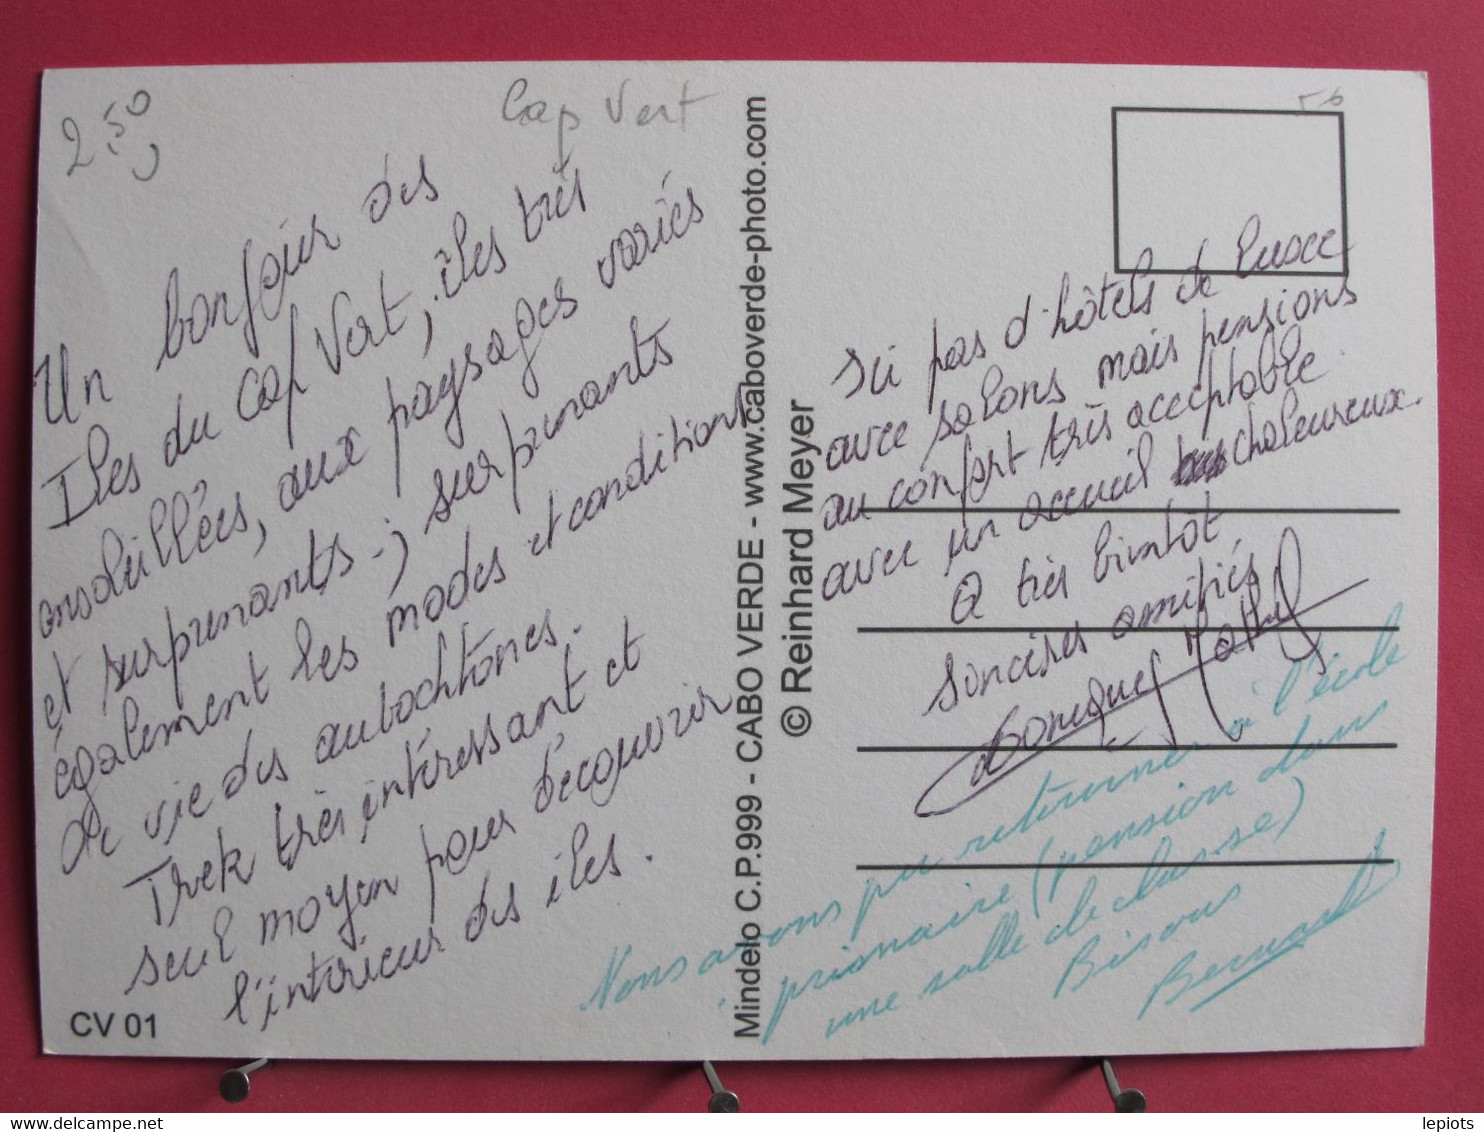 2.50
Cap Vert
Un bonjour des
Iles du Cap Vert, îles très
ensoleillées, aux paysages variés
et surprenants ; surprenants
également les modes et conditions
de vie des autochtones.
Trek très intéressant et
seul moyen pour découvrir
l'intérieur des îles.
CV 01
Mindelo C.P.999 - CABO VERDE - www.caboverde-photo.com
© Reinhard Meyer
56
Ici pas d'hôtels de luxe
avec salons mais pensions
au confort très acceptable
avec un accueil chaleureux.
A très bientôt
Sincères amitiés
Nous avons pu retourner à l'école
primaire (pension dans
une salle de classe)
Bisous
Bernard
lepiots